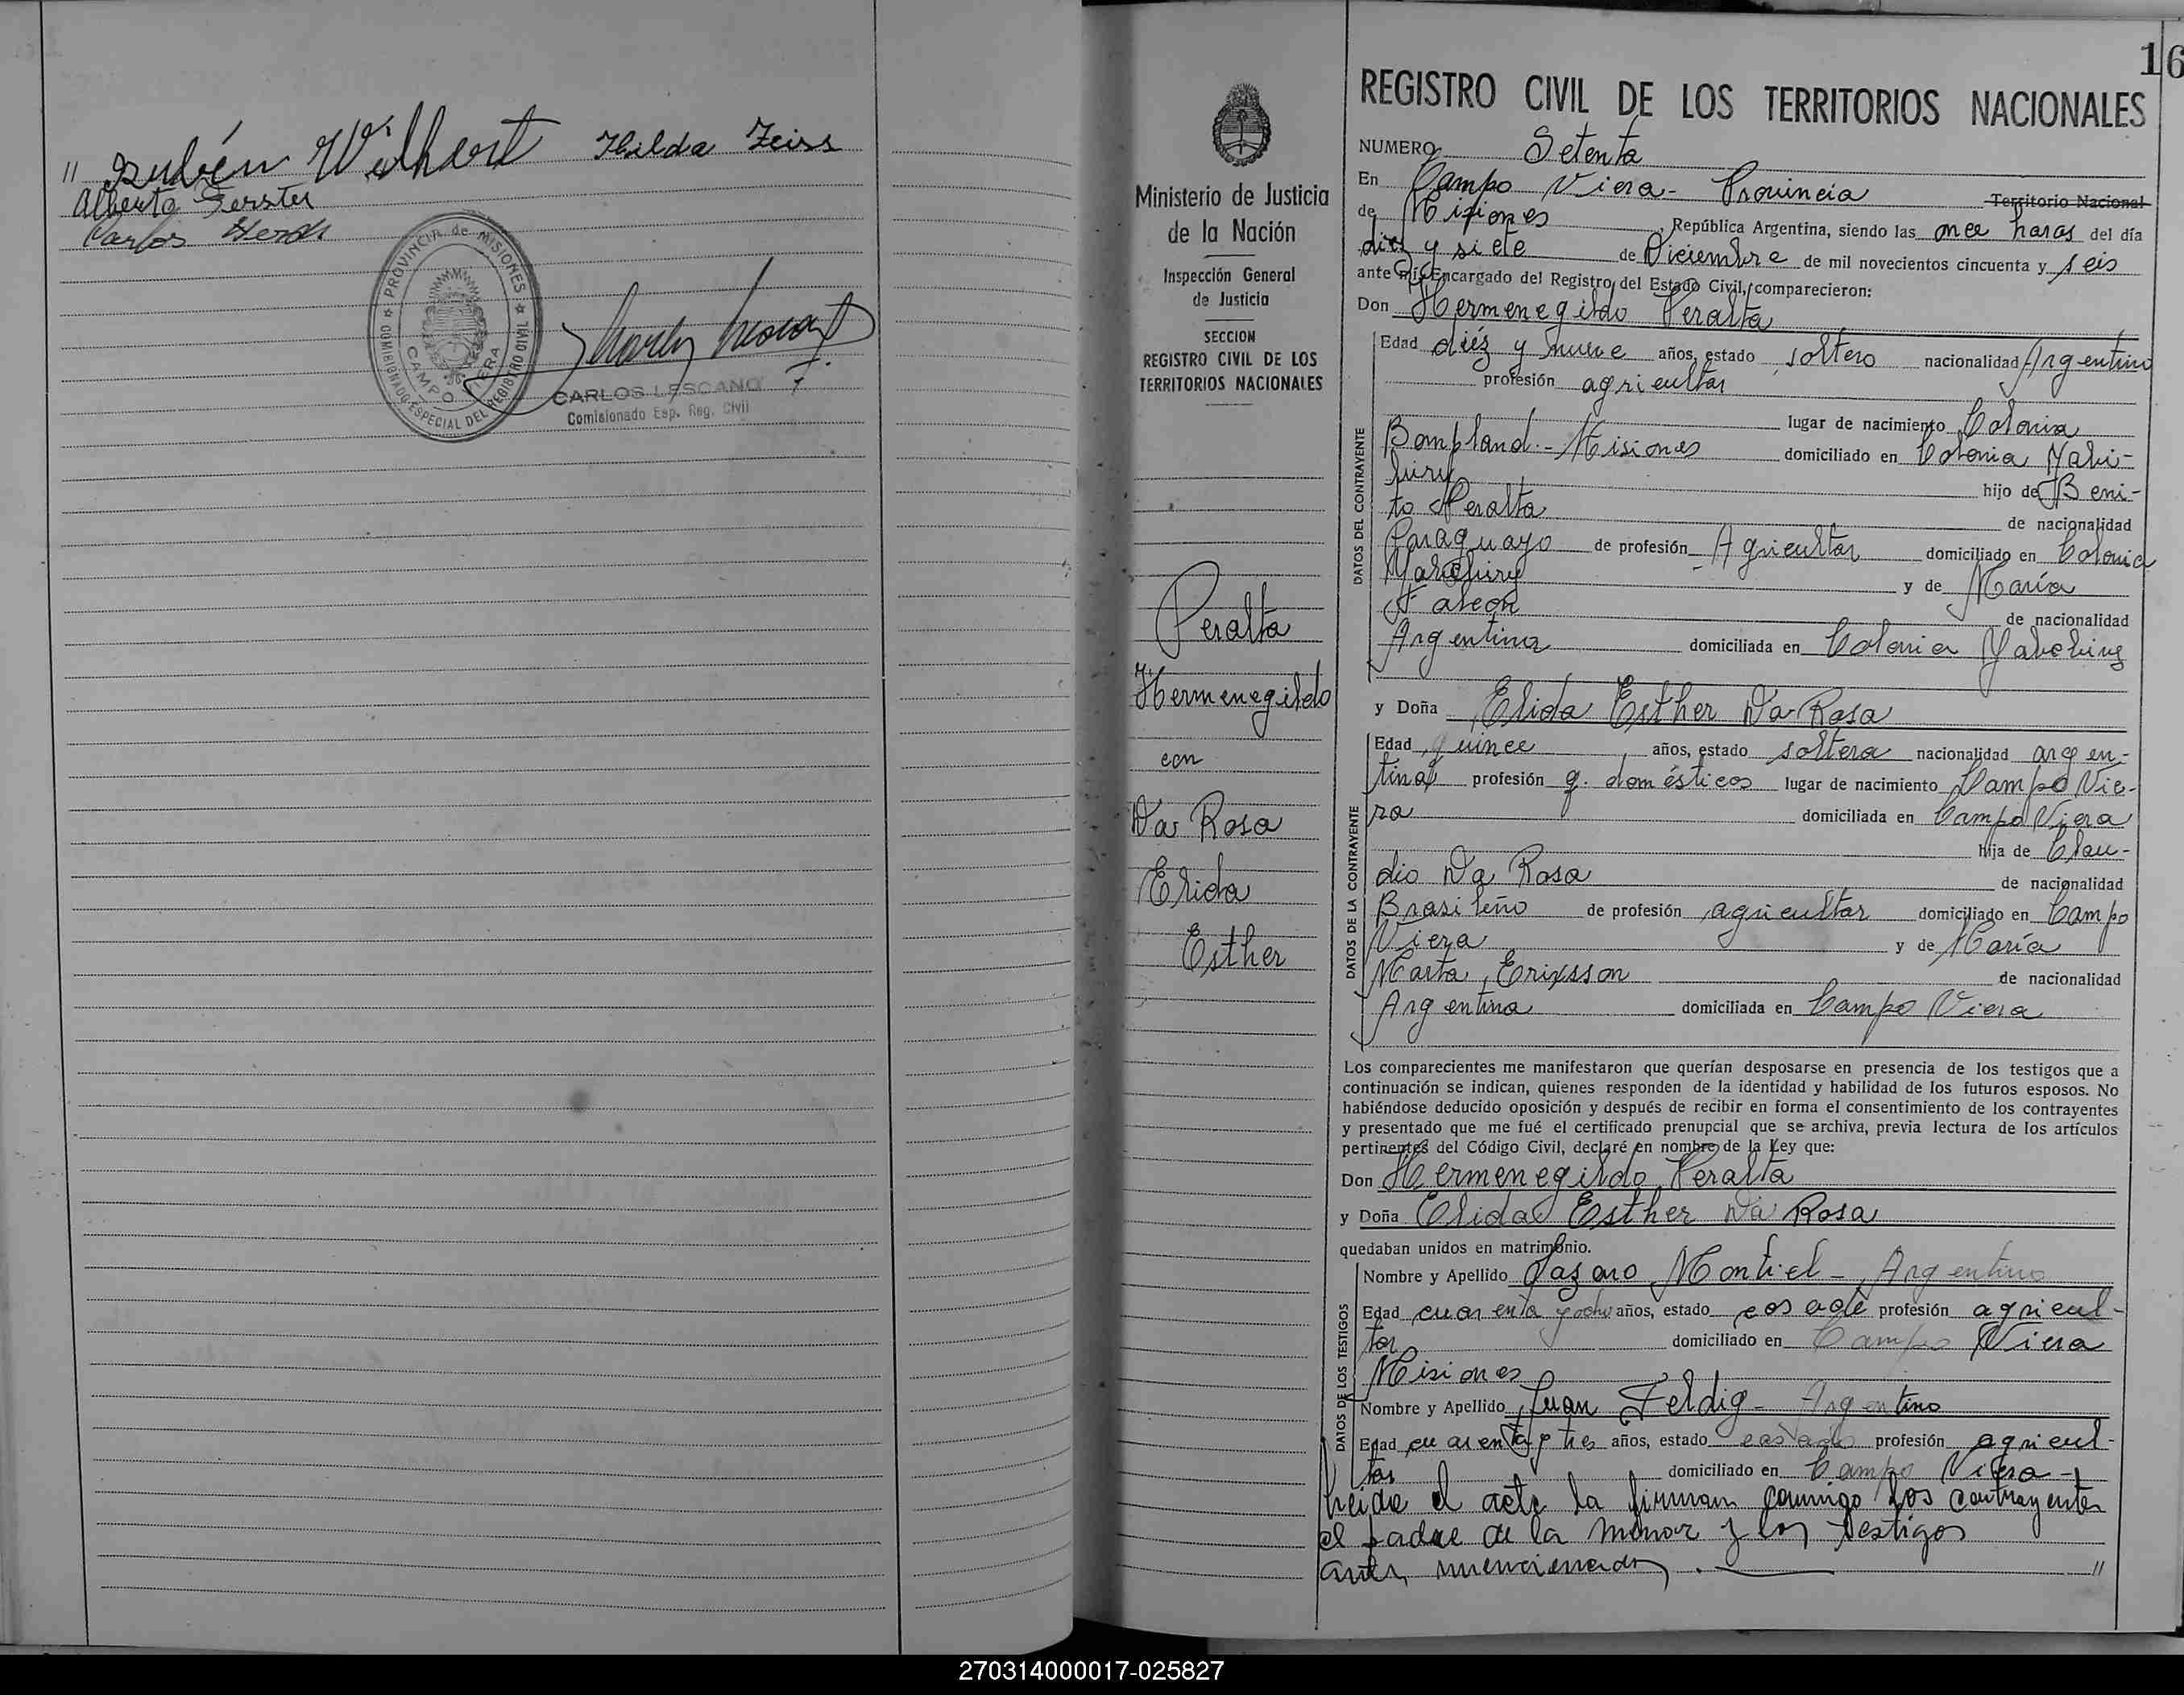 " Rubén Wilhert Hilda Zeiss
Alberto Ferster
Carlos
PROVINCIA de MISIONES
COMISIONADO ESPECIAL DEL REGISTRO CIVIL
CAMPO VIERA
CARLOS LESCANO
Comisionado Esp. Reg. Civil
16
Ministerio de Justicia
de la Nación
Inspección General
de Justicia
SECCION
REGISTRO CIVIL DE LOS
TERRITORIOS NACIONALES
Peralta
Hermenegildo
con
Da Rosa
Elida
Esther
REGISTRO CIVIL DE LOS TERRITORIOS NACIONALES
NUMERO Setenta
En Campo Viera - Provincia Territorio Nacional
de Misiones, República Argentina, siendo las once horas del día
diez y siete de Diciembre de mil novecientos cincuenta y seis
ante mí, Encargado del Registro del Estado Civil, comparecieron:
Don Hermenegildo Peralta
DATOS DEL CONTRAYENTE
Edad diéz y nueve años, estado soltero nacionalidad Argentino
profesión agricultor
lugar de nacimiento Colonia
Bompland.- Misiones domiciliado en Colonia Yabi-
hijo de Beni-
to Peralta
de nacionalidad
Paraguayo de profesión Agricultor domiciliado en Colonia
y de María
de nacionalidad
Argentina domiciliada en Colonia
y Doña Elida Esther Da Rosa
DATOS DE LA CONTRAYENTE
Edad quince años, estado soltera nacionalidad argen-
tina profesión q. domésticos lugar de nacimiento Campo Vie-
ra domiciliada en Campo Viera
hija de Clau-
dio Da Rosa de nacionalidad
Brasileño de profesión agricultor domiciliado en Campo
Viera y de María
Marta Erixsson de nacionalidad
Argentina domiciliada en Campo Viera
Los comparecientes me manifestaron que querían desposarse en presencia de los testigos que a
continuación se indican, quienes responden de la identidad y habilidad de los futuros esposos. No
habiéndose deducido oposición y después de recibir en forma el consentimiento de los contrayentes
y presentado que me fué el certificado prenupcial que se archiva, previa lectura de los artículos
pertinentes del Código Civil, declaré en nombre de la Ley que:
Don Hermenegildo Peralta
y Doña Elida Esther Da Rosa
quedaban unidos en matrimonio.
DATOS DE LOS TESTIGOS
Nombre y Apellido Lazaro Montiel - Argentino
Edad cuarenta y ocho años, estado casado profesión agricul-
tor domiciliado en Campo Viera
Misiones
Nombre y Apellido Juan Feldig - Argentino
Edad cuarenta y tres años, estado casado profesión agricul-
tor domiciliado en Campo Viera -
Leída el acta la firman conmigo los contrayentes
el padre de la menor y los testigos
antes mencionados . "
270314000017-025827